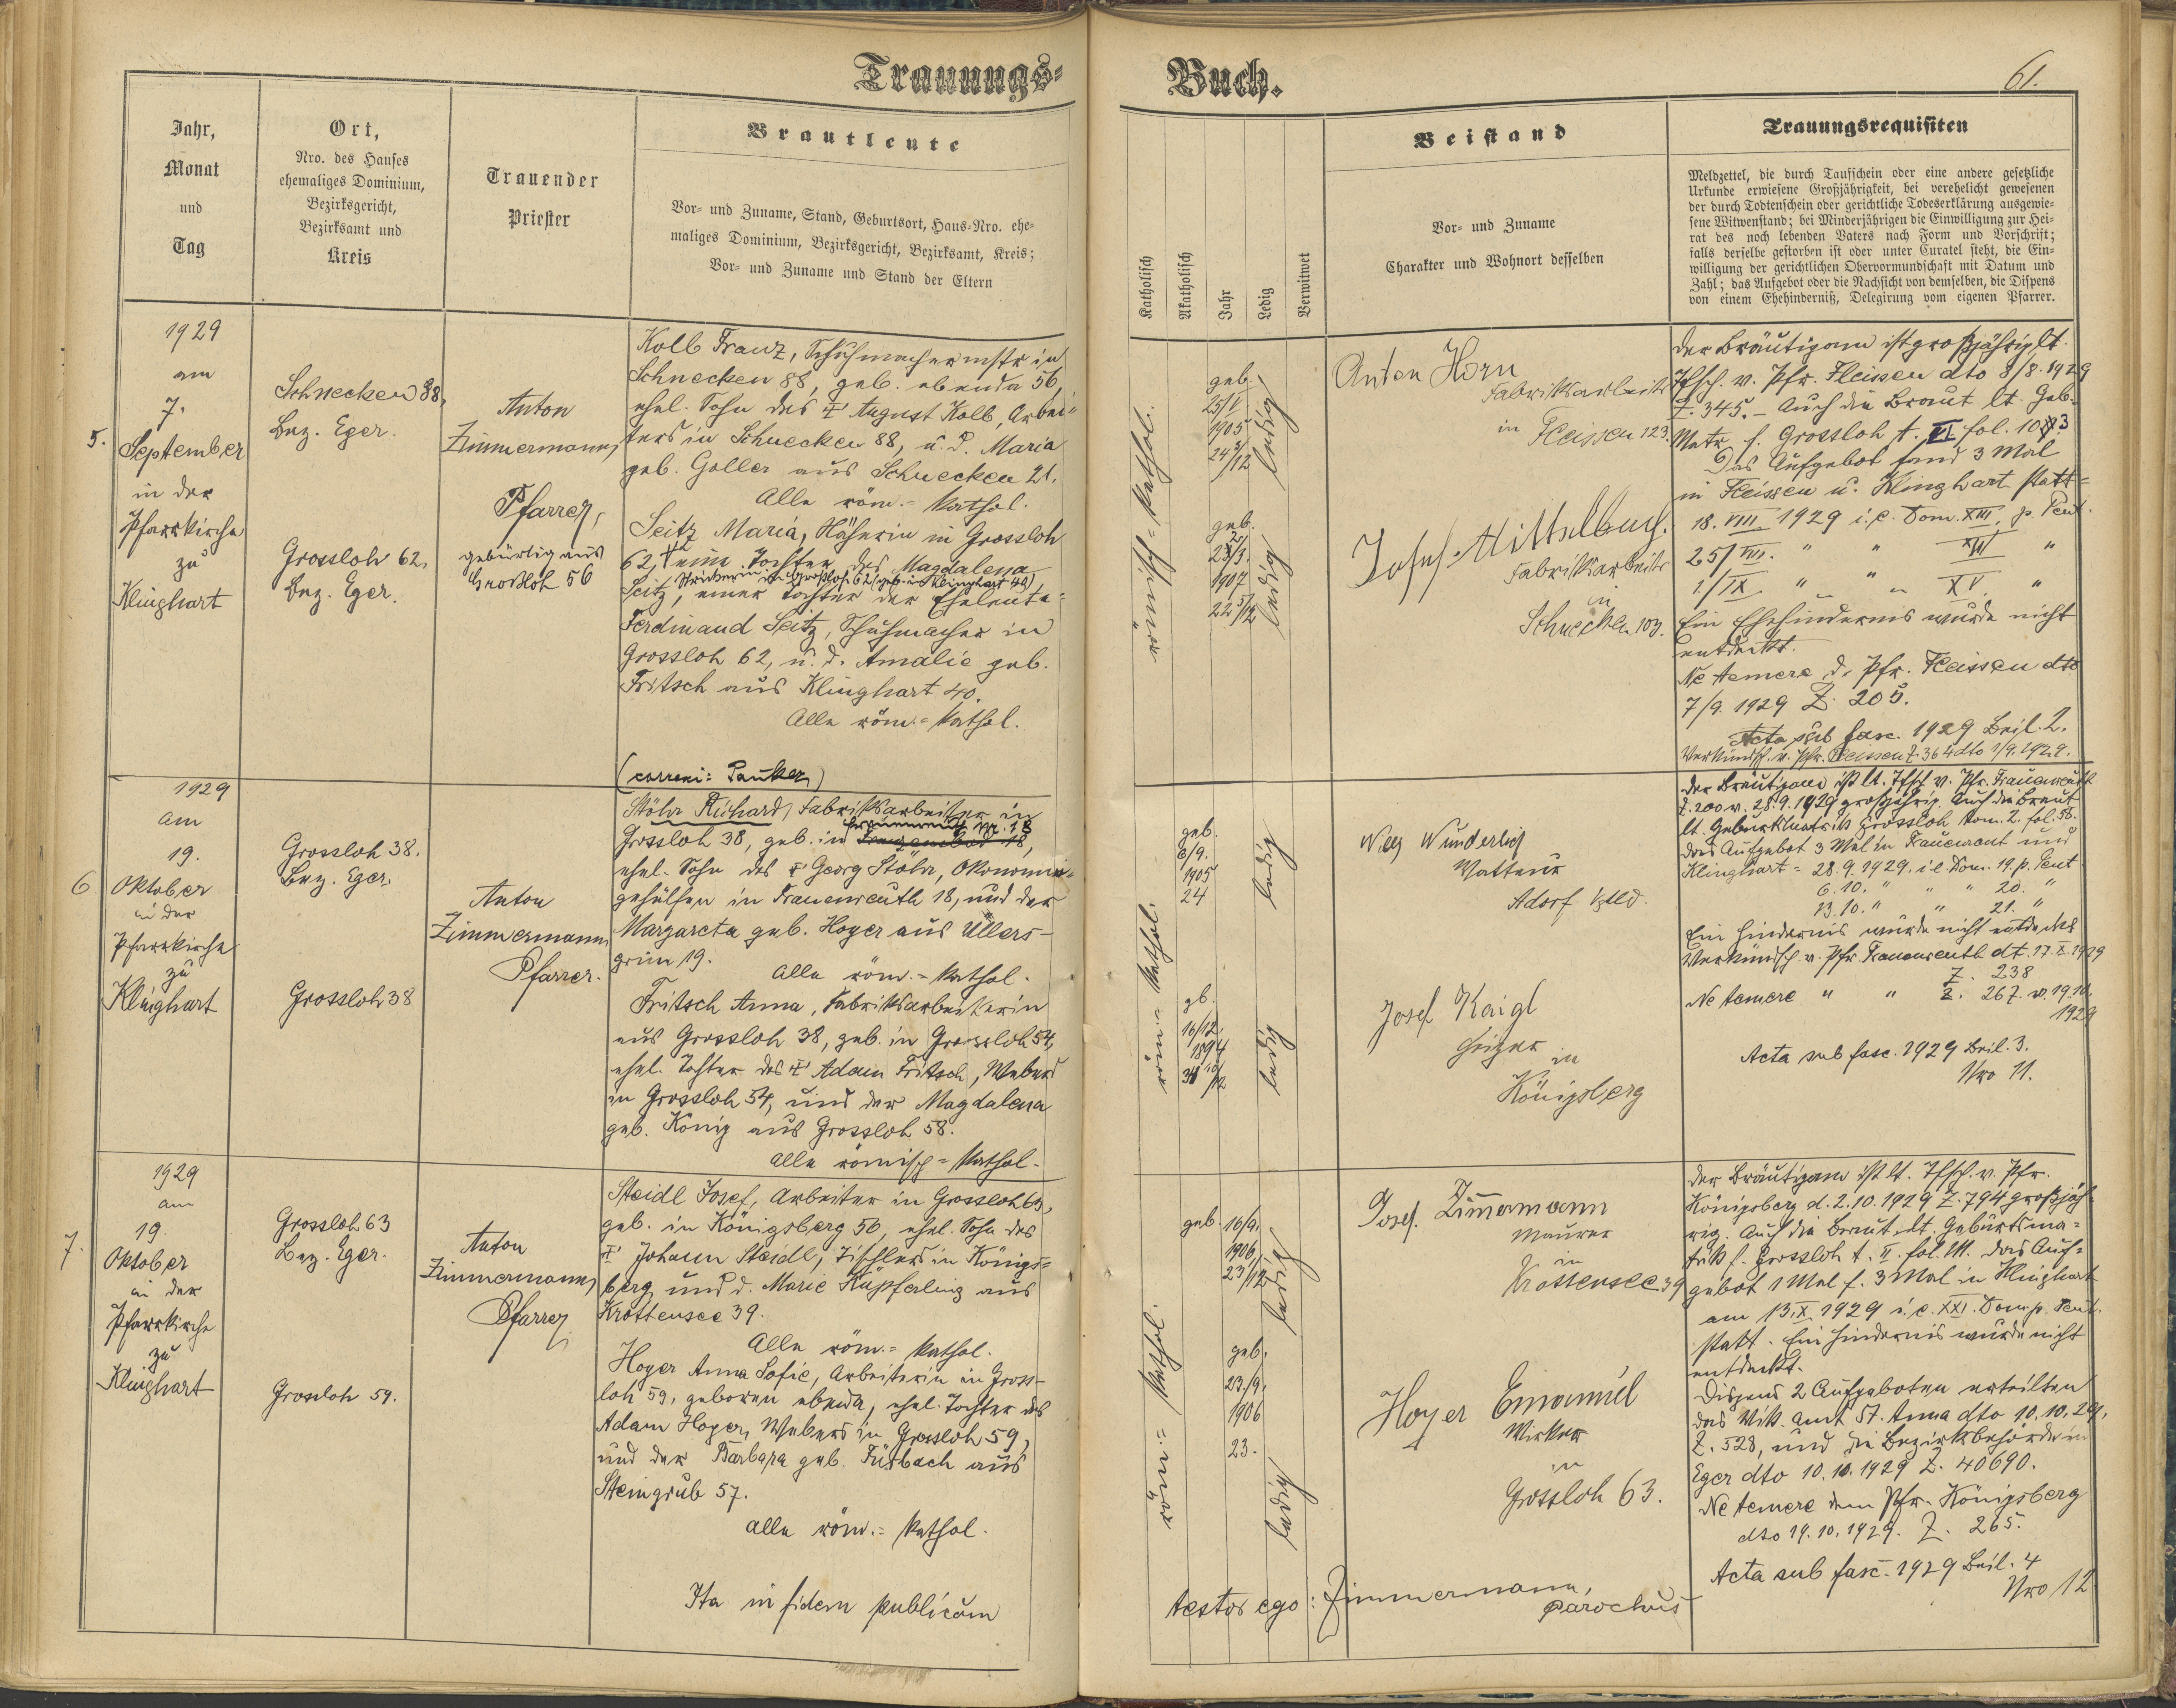 Trauungs=
Buch.
61.
Jahr,
Monat
und
Tag
Ort,
Nro. des Hauses
ehemaliges Dominium,
Bezirksgericht,
Bezirksamt und
Kreis
Trauender
Priester
Brautleute
Vor= und Zuname, Stand, Geburtsort, Haus=Nro. ehe=
maliges Dominium, Bezirksgericht, Bezirksamt, Kreis;
Vor= und Zuname und Stand der Eltern
Katholisch
Akatholisch
Jahr
Ledig
Verwitwet
Beistand
Vor= und Zuname
Charakter und Wohnort desselben
Trauungsrequisiten
Meldzettel, die durch Taufschein oder eine andere gesetzliche
Urkunde erwiesene Großjährigkeit, bei verehelicht gewesenen
der durch Todtenschein oder gerichtliche Todeserklärung ausgewie=
sene Witwenstand; bei Minderjährigen die Einwilligung zur Hei=
rat des noch lebenden Vaters nach Form und Vorschrift;
falls derselbe gestorben ist oder unter Curatel steht, die Ein=
willigung der gerichtlichen Obervormundschaft mit Datum und
Zahl; das Aufgebot oder die Nachsicht von demselben, die Dispens
von einem Ehehinderniß, Delegirung vom eigenen Pfarrer.
5.
1929
am
7.
September
in der
Pfarrkirche
zu
Klinghart
Schnecken 88,
Bez. Eger.
Grossloh 62,
Bez. Eger.
Anton
Zimmermann,
Pfarrer,
gebürtig aus
Großloh 56
Kolb Franz, Schuhmachermstr in
Schnecken 88, geb. ebenda 56,
ehel. Sohn des † August Kolb, Arbei=
ters in Schnecken 88, u. d. Maria
geb. Goller aus Schnecken 21.
Alle röm.=kathol.
Seitz Maria, Näherin in Grossloh
62, eine Tochter des Magdalena
Strickerin in Großloh 62 (geb. in Klinghart 40)
Seitz, einer Tochter der Eheleute=
Ferdinand Seitz, Schuhmacher in
Grossloh 62, u. d. Amalie geb.
Fritsch aus Klinghart 40.
Alle röm.=kathol.
römisch=kathol.
geb.
25/I
1905
24 /12
ledig
geb.
1907
22 /12
ledig
Anton Horn
Fabriksarbeiter
in Fleissen 123.
Josef Mittelbach.
Fabriksarbeiter
in
Schnecken 103.
Der Bräutigam ist großjährig lt.
Tfsch. v. Pfr. Fleissen dto 8/8. 1929
Z. 345. - Auch die Braut lt. Geb.
Matr. f. Grossloh t. VI fol. 103
Das Aufgebot fand 3 Mal
in Fleissen u. Klinghart statt=
18. VIII. 1929 i. e. Dom. XIII. p. Pent.
25/VIII. " " XIV "
1./IX. " " XV. "
Ein Ehehindernis wurde nicht
entdeckt.
Ne temere d. Pfr. Fleissen dto
7/9. 1929 Z. 205.
Acta sub fasc. 1929 Beil. 2.
Verkündsch. v. Pfr. Fleissen Z. 364 dto 1/9. 1929.
6
1929
am
19.
Oktober
in der
Pfarrkirche
zu
Klinghart
Grossloh 38.
Bez. Eger.
Grossloh 38
Anton
Zimmermann
Pfarrer.
Stöhr Richard, Fabriksarbeiter in
Frauenreuth Nr. 18
Grossloh 38, geb. in
ehel. Sohn des † Georg Stöhr, Ökonomie=
gehülfen in Frauenreuth 18, und der
Margareta geb. Hoyer aus Ullers-
grün 19.
Alle röm.=kathol.
Fritsch Anna, Fabriksarbeiterin
aus Grossloh 38, geb. in Grossloh 54,
ehel. Tochter des † Adam Fritsch, Webers
in Grossloh 54, und der Magdalena
geb. König aus Grossloh 58.
Alle römisch=kathol.
röm.=kathol.
geb.
6/9.
1905
24
ledig
gb.
16/12.
1894
34 10/12
ledig
Wunderlich
Adorf Vgtld.
Josef Kaigl
Heizer in
Königsberg
Der Bräutigam ist lt. Tfsch. v. Pfr. Frauenreuth
Z. 200 v. 28. 9. 1929 großjährig. Auch die Braut
lt. Geburtsmatrik Grossloh tom. 2. fol. 58.
Das Aufgebot 3 Mal in Frauenreut und
Klinghart = 28. 9. 1929. i. e. Dom. 19. p. Pent
6. 10. " " " 20. "
13. 10. " " 21. "
Ein Hindernis wurde nicht entdeckt
Verkündsch v. Pfr Frauenreuth dt. 17. X. 1929
Z. 238
Ne temere " " Z. 267. v. 19. 10.
1929
Acta sub fasc. 1929 Beil. 3.
Nro 11.
7.
1929
am
19.
Oktober
in der
Pfarrkirche
zu
Klinghart
Grossloh 63
Bez. Eger.
Grossloh 59.
Anton
Zimmermann,
Pfarrer
Steidl Josef, Arbeiter in Grossloh 63,
geb. in Königsberg 56, ehel. Sohn des
† Johann Steidl, Tischlers in Königs=
berg und d. Marie Küpferling aus
Krottensee 39.
Alle röm.=kathol.
Hoyer Anna Sofie, Arbeiterin in Gross-
loh 59, geboren ebenda, ehel. Tochter des
Adam Hoyer, Webers in Grossloh 59,
und der Barbara geb. Fürbach aus
Steingrub 57.
alle röm.=kathol.
Ita in fidem publicam
röm.=kathol.
geb. 16/9.
1906,
23 /12
ledig
geb.
23./9.
1906
23.
ledig
Josef Zimmermann
Maurer
in
Krottensee 39
Hoyer Emanuel
Wirker
in
Grossloh 63.
testor ego: Zimmermann,
parochus
Der Bräutigam ist lt. Tfsch. v. Pfr.
Königsberg d. 2. 10. 1929 Z. 794 großjäh-
rig. Auch die Braut lt. Geburtsma=
trik f. Grossloh t. II. fol. 111. Das Auf=
gebot 1 Mal f. 3 Mal in Klinghart
am 13. X. 1929 i. e. XXI. Dom. p. Pent.
statt. Ein Hindernis wurde nicht
entdeckt.
Dispens 2 Aufgeboten erteilten
das Vik. Amt St. Anna dto 10. 10. 29,
Z. 528, und die Bezirksbehörde in
Eger dto 10. 10. 1929 Z. 40690.
Ne temere dem Pfr. Königsberg
dto 19. 10. 1929. Z. 265.
Acta sub fasc. 1929 Beil. 4
Nro 12